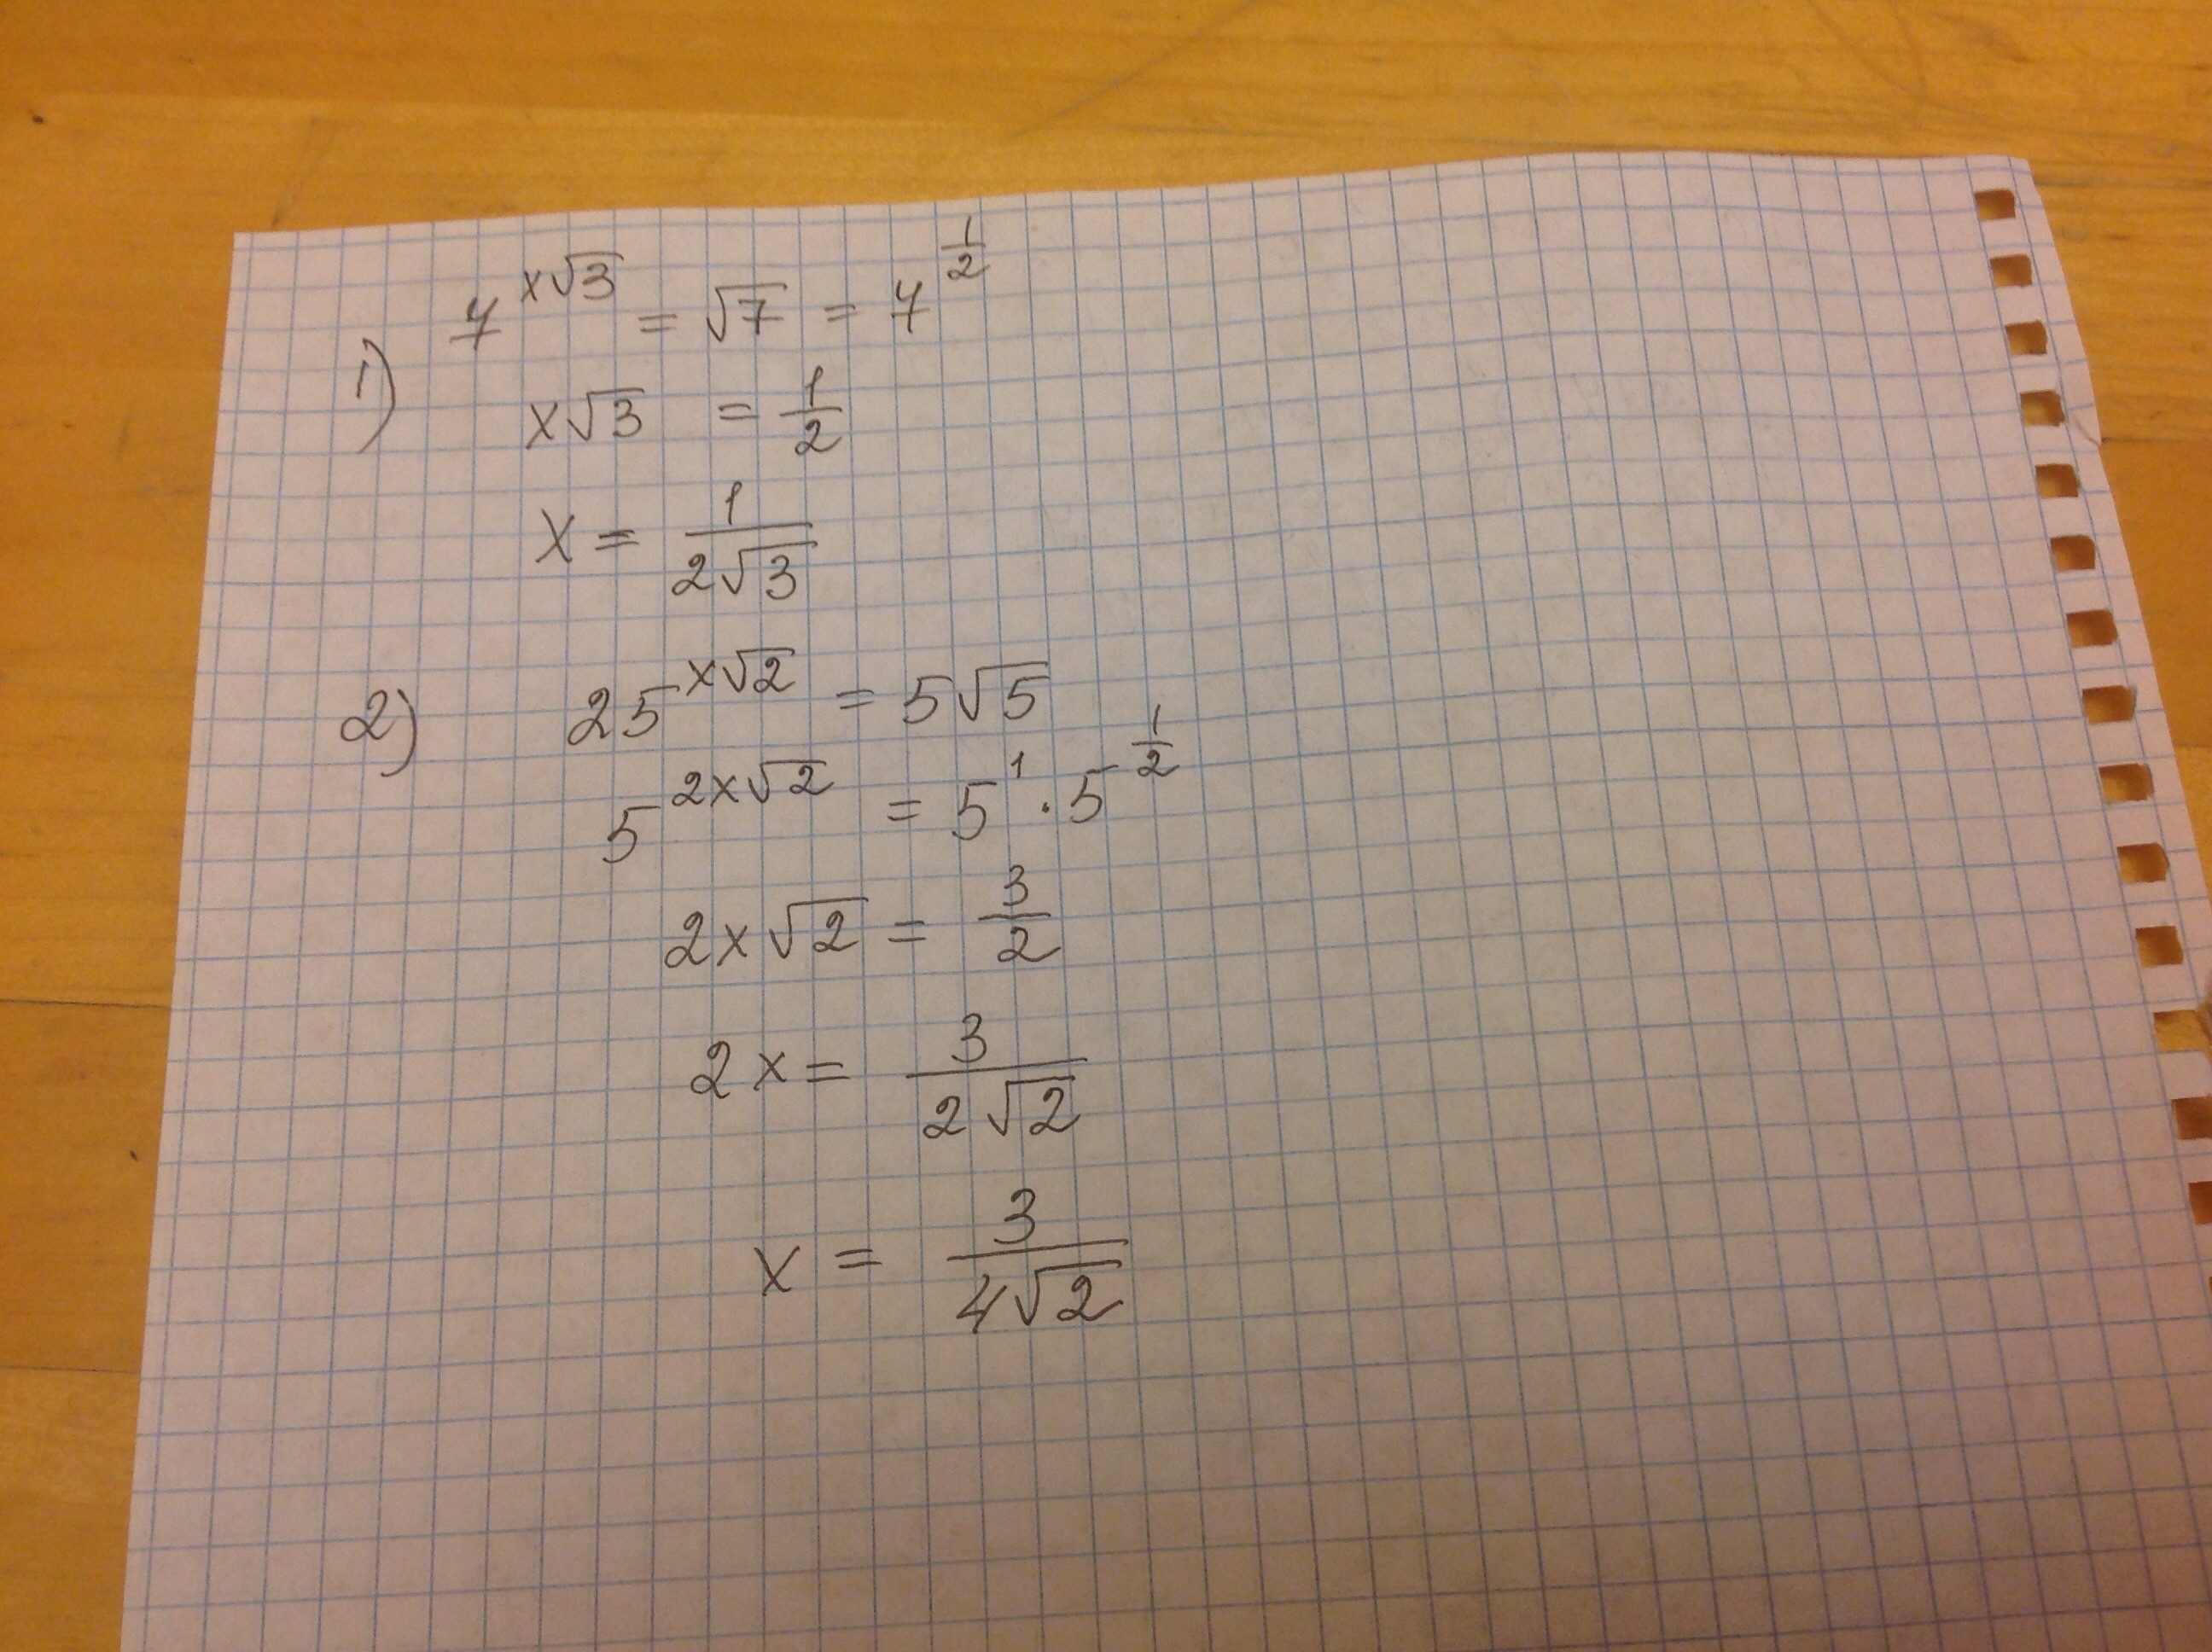 1) 7^{x√3} = √7 = 7^{1/2}
x√3 = 1/2
x = 1/(2√3)
2) 25^{x√2} = 5√5
5^{2x√2} = 5^1 · 5^{1/2}
2x√2 = 3/2
2x = 3/(2√2)
x = 3/(4√2)